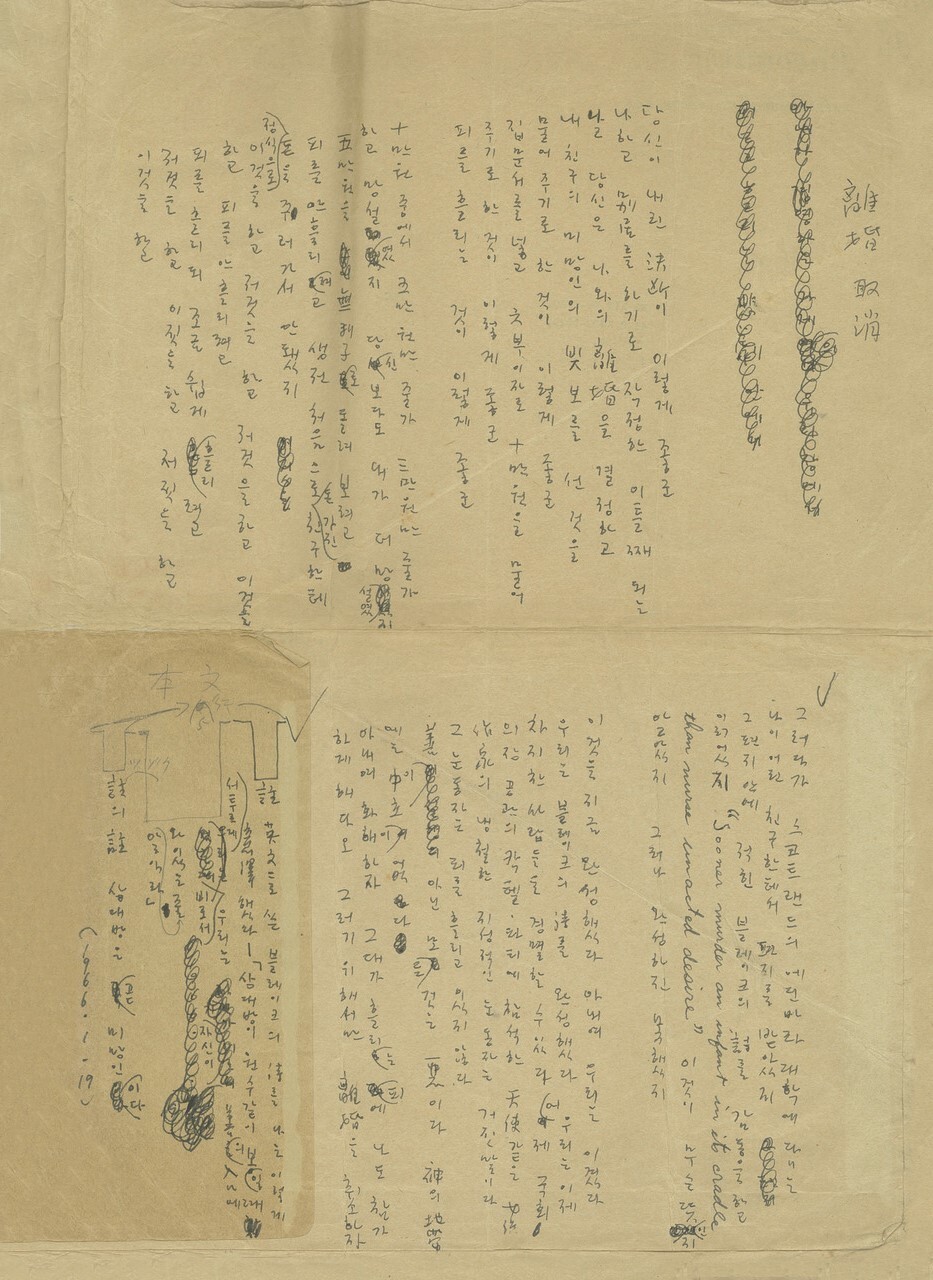 離婚 取消
당신이 내린 決斷이 이렇게 좋군
나하고 別居를 하기로 작정한 이틀째 되는
날 당신은 나와의 離婚을 결정하고
내 친구의 미망인의 빚보를 선 것을
물어주기로 한 것이 이렇게 좋군
집문서를 넣고 六부이자로 十만원을 물어
주기로 한 것이 이렇게 좋군
피를 흘리는 것이 이렇게 좋군
十만원 중에서 五만원만 줄까 三만원만 줄까
하고 망설였지 당신보다도 내가 더 망설였지
五만원을 無利子로 돌려 보려고
피를 안 흘리려고 생전 처음으로 돈 가진 친구한테
정식으로 돈을 꾸러 가서 안됐지
이것을 하고 저것을 하고 저것을 하고 이것을
하고 피를 안 흘리려고
피를 흘리되 조금 쉽게 흘리려고
저것을 하고 이짓을 하고 저짓을 하고
이것을 하고
그러다가 스코트랜드의 에딘바라 대학에 다니는
나이 어린 친구한테서 편지를 받았지
그 편지 안에 적힌 블레이크의 詩를 감동을 하고
읽었지 "Sooner murder an infant in its cradle
than nurse unacted desire" 이것이 무슨 뜻인지
알았지 그러나 완성하진 못했지
이것을 지금 완성했다 아내여 우리는 이겼다
우리는 블레이크의 詩를 완성했다 우리는 이제
차디찬 사람들을 경멸할 수 있다 어제 국회
의장 공관의 칵텔 파티에 참석한 天使같은 女流
作家의 냉철한 지성적인 눈동자는 거짓말이다
그 눈동자는 피를 흘리고 있지 않다
善이 아닌 모든 것은 惡이다 神의 地帶
에는 中立이 없다
아내여 화해하자 그대가 흘리는 피에 나도 참가
하게 해다오 그러기 위해서만 離婚을 취소하자
本文
註 英文으로 쓴 블레이크의 詩를 나는 이렇게
서투르게 意譯했다 「상대방이 원수같이 보일 때
비로소 우리는 자신이 善의 入口에
와 있는 줄
알아라」
註의 註 상대방은 곧 미망인이다
(1966. 1. 19)